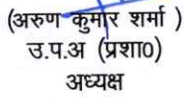 (अरुण कुमार शर्मा )
उ.प.अ (प्रशा0)
अध्यक्ष